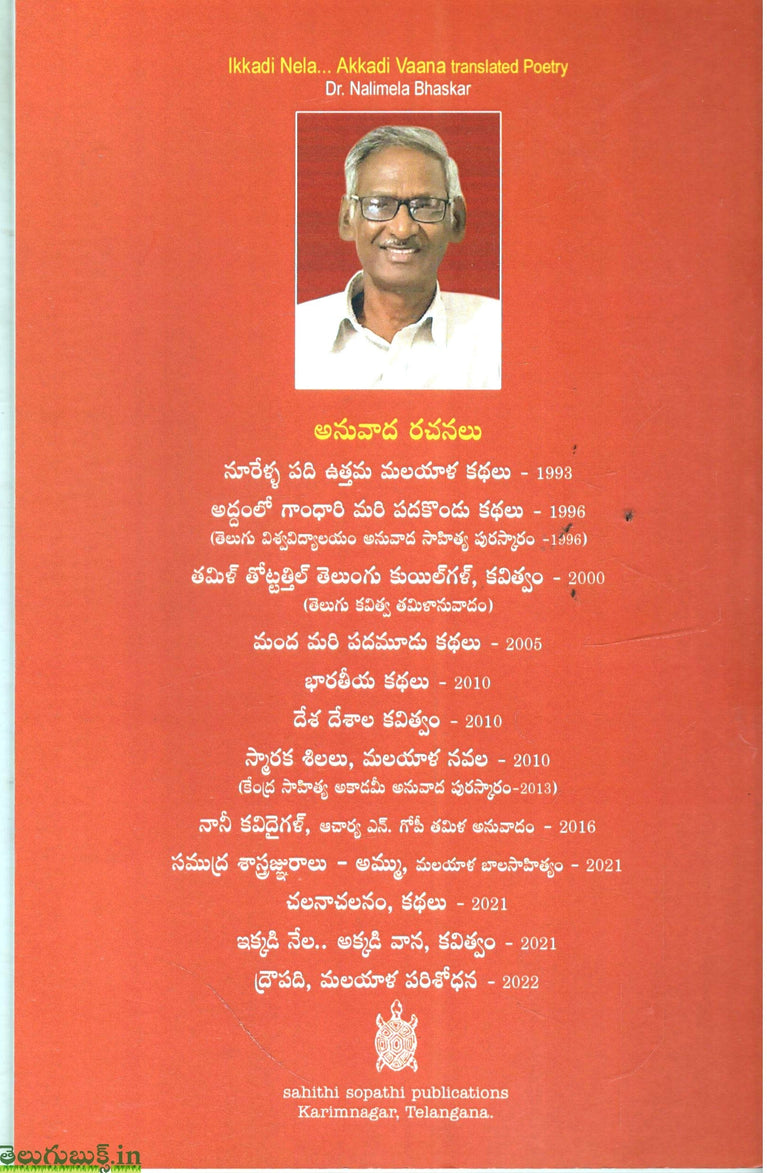 Ikkadi Nela... Akkadi Vaana translated Poetry
Dr. Nalimela Bhaskar
అనువాద రచనలు
నూరేళ్ళ పది ఉత్తమ మలయాళ కథలు - 1993
అద్దంలో గాంధారి మరి పదకొండు కథలు - 1996
(తెలుగు విశ్వవిద్యాలయం అనువాద సాహిత్య పురస్కారం -1996)
తమిళ్ తోట్టత్తిల్ తెలుంగు కుయిల్‌గళ్, కవిత్వం - 2000
(తెలుగు కవిత్వ తమిళానువాదం)
మంద మరి పదమూడు కథలు - 2005
భారతీయ కథలు - 2010
దేశ దేశాల కవిత్వం - 2010
స్మారక శిలలు, మలయాళ నవల - 2010
(కేంద్ర సాహిత్య అకాడమీ అనువాద పురస్కారం-2013)
నానీ కవిదైగళ్, ఆచార్య ఎన్. గోపీ తమిళ అనువాదం - 2016
సముద్ర శాస్త్రజ్ఞురాలు - అమ్ము, మలయాళ బాలసాహిత్యం - 2021
చలనాచలనం, కథలు - 2021
ఇక్కడి నేల.. అక్కడి వాన, కవిత్వం - 2021
ద్రౌపది, మలయాళ పరిశోధన - 2022
sahithi sopathi publications
Karimnagar, Telangana.
తెలుగుబుక్స్.in